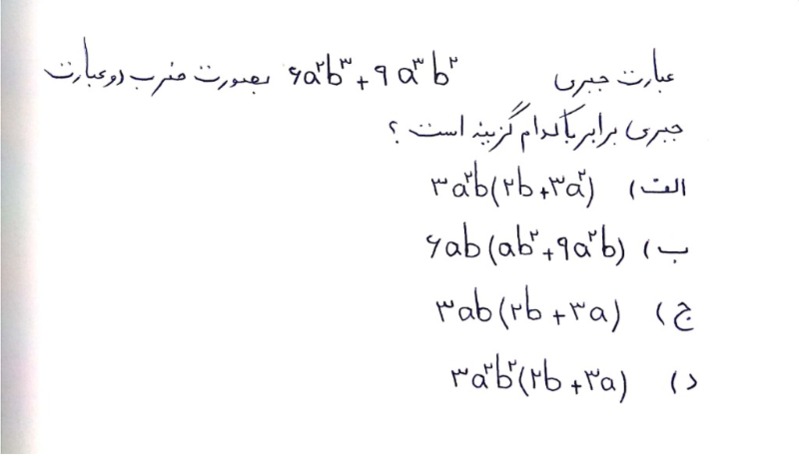 عبارت جبری ۶a²b³ + ۹a³b² بصورت ضرب دو عبارت
جبری برابر با کدام گزینه است ؟
الف) ۳a²b(۲b+۳a²)
ب) ۶ab(ab²+۹a²b)
ج) ۳ab(۲b+۳a)
د) ۳a²b²(۲b+۳a)